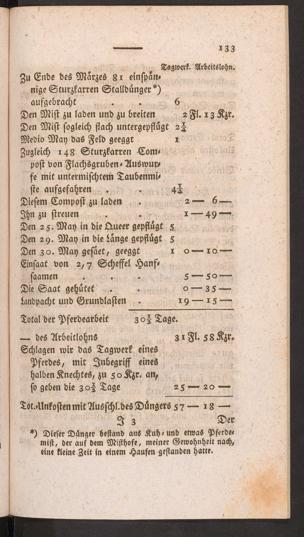 133
Tagwerk. Arbeitslohn.
Zu Ende des Märzes 81 einspän-
nige Sturzkarren Stalldünger*)
aufgebracht . . 6
Den Mist zu laden und zu breiten 2 Fl. 13 Kzr.
Den Mist sogleich flach untergepflügt 2½
Medio May das Feld geeggt 1
Zugleich 148 Sturzkarren Com-
post von Flachsgruben-Auswur-
fe mit untermischtem Taubenmi-
ste aufgefahren . . 4¾
Diesem Compost zu laden 2 — 6 —
Ihn zu streuen . . 1 — 49 —
Den 25. May in die Queer gepflügt 5
Den 29. May in die Länge gepflügt 5
Den 30. May gesäet, geeggt 1 0 — 10 —
Einsaat von 2,7 Scheffel Hanf-
saamen . . . 5 — 50 —
Die Saat gehütet . . 0 — 35 —
Landpacht und Grundlasten . 19 — 15 —
Total der Pferdearbeit 30¾ Tage.
— des Arbeitslohns 31 Fl. 58 Kzr.
Schlagen wir das Tagwerk eines
Pferdes, mit Inbegriff eines
halben Knechtes, zu 50 Kzr. an,
so geben die 30¾ Tage 25 — 20 —
Tot.-Unkosten mit Ausschl. des Düngers 57 — 18 —
J 3 Der
*) Dieser Dünger bestand aus Kuh- und etwas Pferde-
mist, der auf dem Misthofe, meiner Gewohnheit nach,
eine kleine Zeit in einem Haufen gestanden hatte.